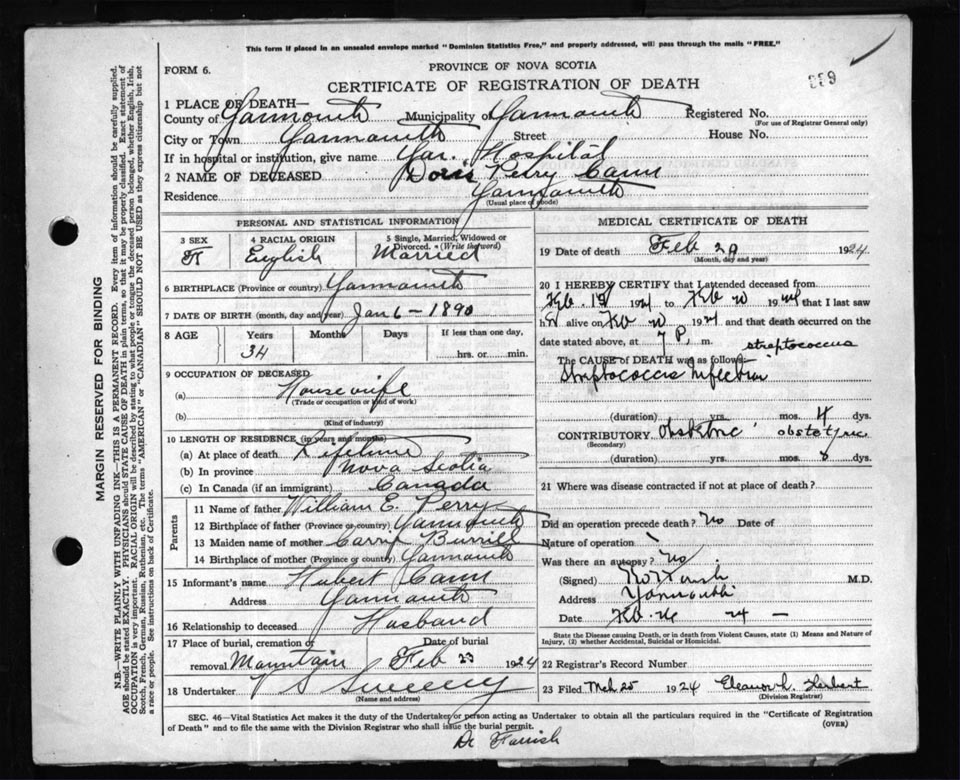 This form if placed in an unsealed envelope marked "Dominion Statistics Free," and properly addressed, will pass through the mails "FREE."
FORM 6.
PROVINCE OF NOVA SCOTIA
CERTIFICATE OF REGISTRATION OF DEATH
1 PLACE OF DEATH—
County of Yarmouth Municipality of Yarmouth Registered No.
(For use of Registrar General only)
City or Town Yarmouth Street House No.
If in hospital or institution, give name Yar. Hospital
2 NAME OF DECEASED Doris Perry Cann
Residence Yarmouth
(Usual place of abode)
PERSONAL AND STATISTICAL INFORMATION
3 SEX F
4 RACIAL ORIGIN English
5 Single, Married, Widowed or Divorced. (Write the word) Married
6 BIRTHPLACE (Province or country) Yarmouth
7 DATE OF BIRTH (month, day and year) Jan 6 - 1890
8 AGE Years Months Days If less than one day,
34 hrs. or min.
9 OCCUPATION OF DECEASED
(a) Housewife
(Trade or occupation or kind of work)
(b)
(Kind of industry)
10 LENGTH OF RESIDENCE (in years and months)
(a) At place of death Lifetime
(b) In province Nova Scotia
(c) In Canada (if an immigrant) Canada
Parents
11 Name of father William E. Perry
12 Birthplace of father (Province or country) Yarmouth
13 Maiden name of mother Carrie Burrill
14 Birthplace of mother (Province or country) Yarmouth
15 Informant's name Hubert Cann
Address Yarmouth
16 Relationship to deceased Husband
17 Place of burial, cremation or Date of burial
removal Mountain Feb 23 1924
18 Undertaker V S Sweeny
(Name and address)
MEDICAL CERTIFICATE OF DEATH
19 Date of death Feb 20 1924
(Month, day and year)
20 I HEREBY CERTIFY that I attended deceased from
Feb. 1924 to Feb 20 1924 that I last saw
h alive on Feb 20 1924 and that death occurred on
date stated above, at 7 P. m.
streptococcus
The CAUSE OF DEATH was as follows—
Streptococcus Infection
(duration) yrs. mos. 4 dys.
CONTRIBUTORY Obstetric obstetric
(Secondary)
(duration) yrs. mos. 8 dys.
21 Where was disease contracted if not at place of death?
Did an operation precede death? No Date of
Nature of operation
Was there an autopsy? No
(Signed) M.D.
Address Yarmouth
Date Feb. 26 24 —
State the Disease causing Death, or in death from Violent Causes, state (1) Means and Nature of
Injury, (2) whether Accidental, Suicidal or Homicidal.
22 Registrar's Record Number
23 Filed Mch 25 1924 Eleanor L. Herbert
(Division Registrar)
SEC. 46—Vital Statistics Act makes it the duty of the Undertaker or person acting as Undertaker to obtain all the particulars required in the "Certificate of Registration
of Death" and to file the same with the Division Registrar who shall issue the burial permit. (OVER)
Dr Farrish
MARGIN RESERVED FOR BINDING
N.B.—WRITE PLAINLY WITH UNFADING INK—THIS IS A PERMANENT RECORD. Every item of information should be carefully supplied.
AGE should be stated EXACTLY. PHYSICIANS should STATE CAUSE OF DEATH in plain terms, so that it may be properly classified. Exact statement of
OCCUPATION is very important. RACIAL ORIGIN will be described by stating to what people or tongue the deceased person belonged, whether English, Irish,
Scotch, French, German, Russian, Ruthenian, etc. The terms "AMERICAN" or "CANADIAN" SHOULD NOT BE USED as they express citizenship but not
a race or people. See instructions on back of Certificate.